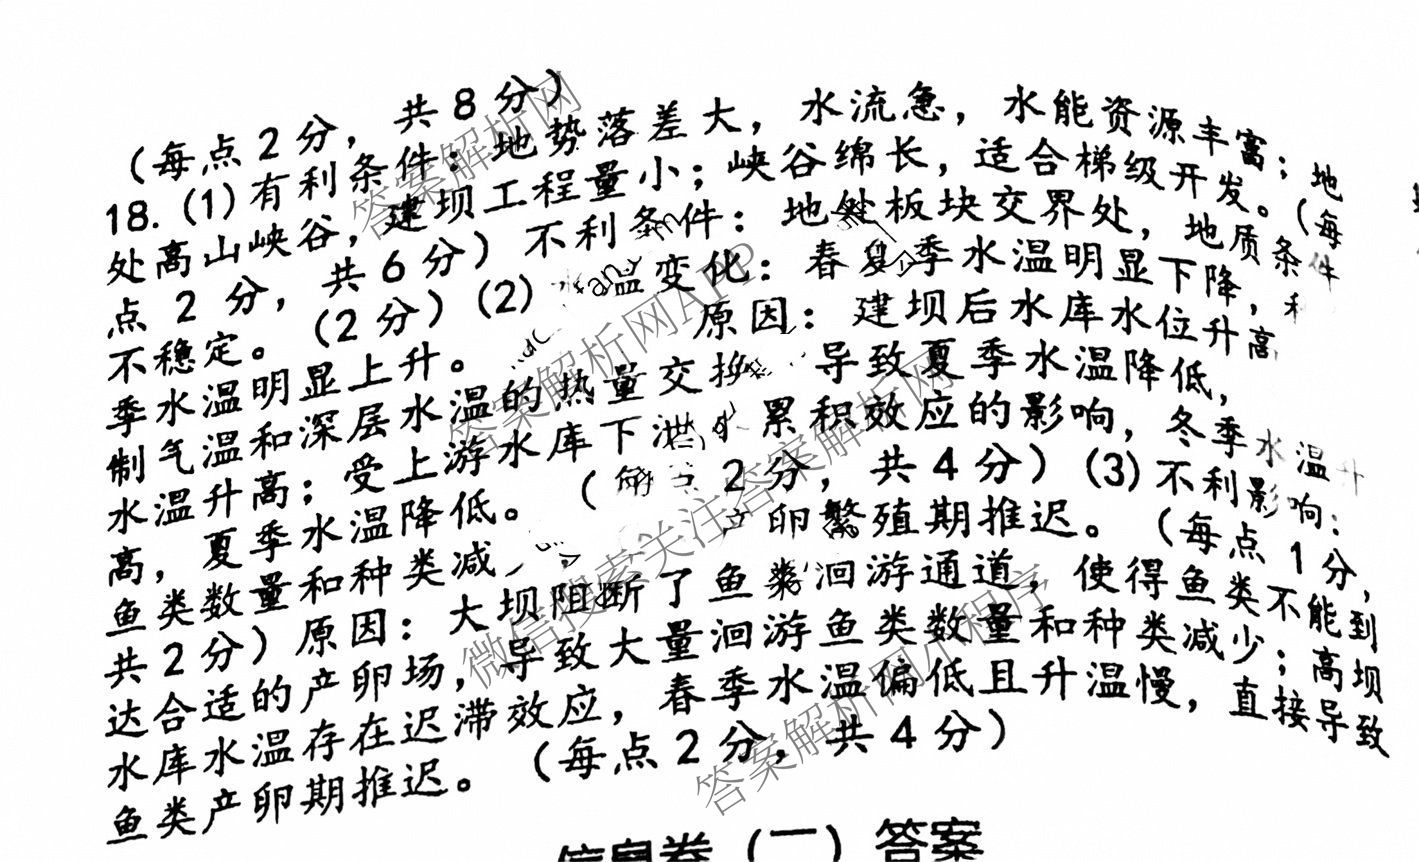 （每点2分，共8分）
18.（1）有利条件：地势落差大，水流急，水能资源丰富；地
处高山峡谷，建坝工程量小；峡谷绵长，适合梯级开发。（每
点2分，共6分）不利条件：地处板块交界处，地质条件
不稳定。（2分）（2）温变化：春夏季水温明显下降，
季水温明显上升。原因：建坝后水库水位升高
制气温和深层水温的热量交换 导致夏季水温降低，
水温升高；受上游水库下泄水累积效应的影响，冬季水温升
高，夏季水温降低。（ 2分，共4分）（3）不利影响：
鱼类数量和种类减 卵繁殖期推迟。（每点1分，
共2分）原因：大坝阻断了鱼类洄游通道，使得鱼类不能到
达合适的产卵场，导致大量洄游鱼类数量和种类减少；高坝
水库水温存在迟滞效应，春季水温偏低且升温慢，直接导致
鱼类产卵期推迟。（每点2分，共4分）
信息卷（二）答案
答案解析网
答案解析网APP
答案解析网
微信搜索关注答案解析网
答案解析网小程序